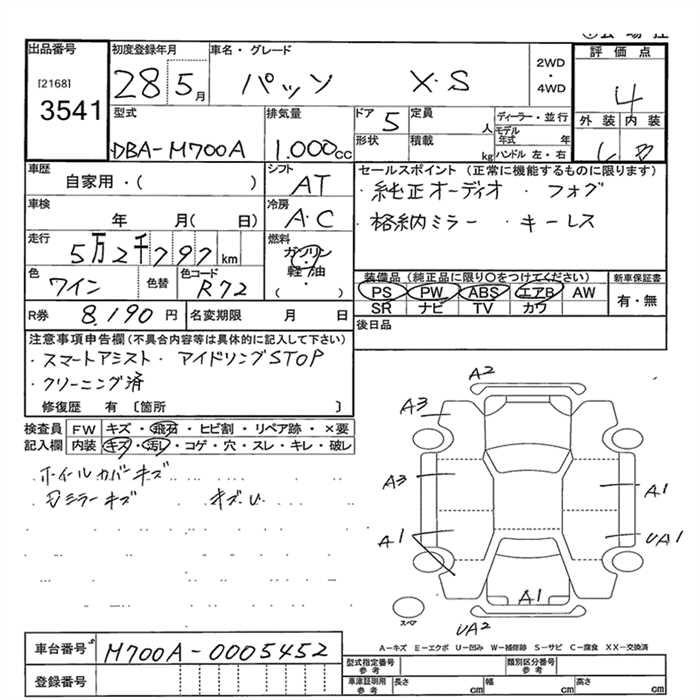 出品番号 初度登録年月 車名・グレード 2WD 評価点
[2168] 28 5月 パッソ X・S ・ 4
3541 4WD 外装 内装
型式 排気量 ドア 5 定員 人 ディーラー・並行
DBA-M700A 1.000cc 形状 積載 kg モデル年式 年
ハンドル 左・右
車歴 シフト セールスポイント(正常に機能するものに限ります)
自家用・( ) AT ・純正オーディオ ・フォグ
車検 冷房 ・格納ミラー ・キーレス
年 月( 日) A・C
走行 燃料
5万2千797km ガソリン
・
色 色替 色コード 軽油
ワイン R72 ・
( )
装備品(純正品に限り○をつけてください) 新車保証書
PS PW ABS エアB AW 有・無
SR ナビ TV カワ
R券 8,190円 名変期限 月 日 後日品
注意事項申告欄(不具合内容等は具体的に記入して下さい)
・スマートアシスト ・アイドリングSTOP
・クリーニング済
修復歴 有 〔箇所 〕
検査員 FW キズ・飛石・ヒビ割・リペア跡・×要
記入欄 内装 キズ・汚レ・コゲ・穴・スレ・キレ・破レ
ホイールカバーキズ
ミラーキズ キズU
A2
A3
A3 A1
A1 UA1
A1
スペア
UA2
A-キズ E-エクボ U-凹み W-補修跡 S-サビ C-腐食 XX-交換済
車台番号 M700A-0005452
登録番号
型式指定番号 参考 類別区分番号 参考
車庫証明用 参考 長さ cm 幅 cm 高さ cm